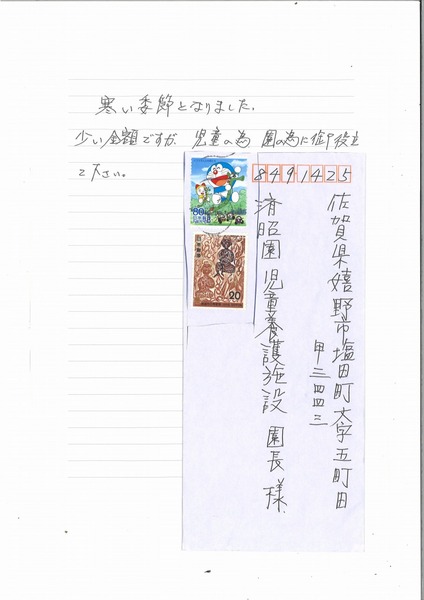 寒い季節となりました。
少い金額ですが 児童の為 園の為に御役立
て下さい。
8491425
佐賀県嬉野市塩田町大字五町田
甲三四四三
済昭園 児童養護施設 園長様
80
20